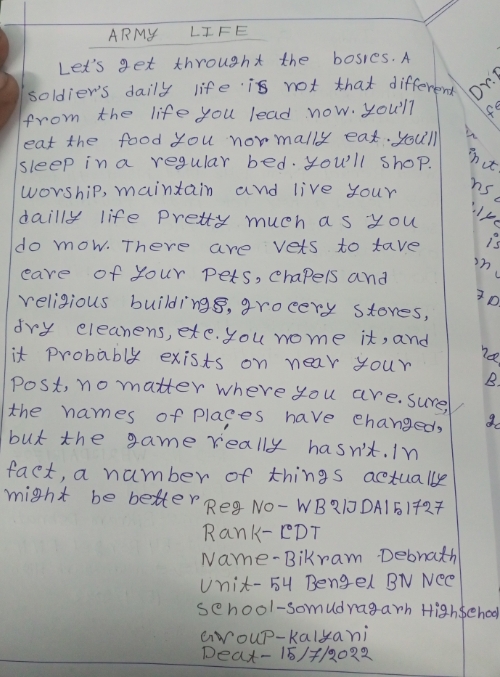 ARMY LIFE
Let's get throught the bosics. A
soldier's daily life is not that different
from the life you lead now. you'll
eat the food you normally eat. you'll
sleep in a regular bed. you'll shop.
worship, maintain and live your
dailly life pretty much as you
do mow. There are vets to tave
care of your pets, chapels and
religious buildings, grocery stores,
dry cleanens, etc. you nome it, and
it probably exists on near your
post, no matter where you are. sure,
the names of places have changed,
but the game really hasn't. In
fact, a number of things actually
might be better
Reg No- WB21JDA151727
Rank- CDT
Name- Bikram Debnath
Unit- 54 Bengel BN NCC
School- Somudragarh High School
Group- Kalyani
Deat- 15/7/2022
Dr.
is
on
B.